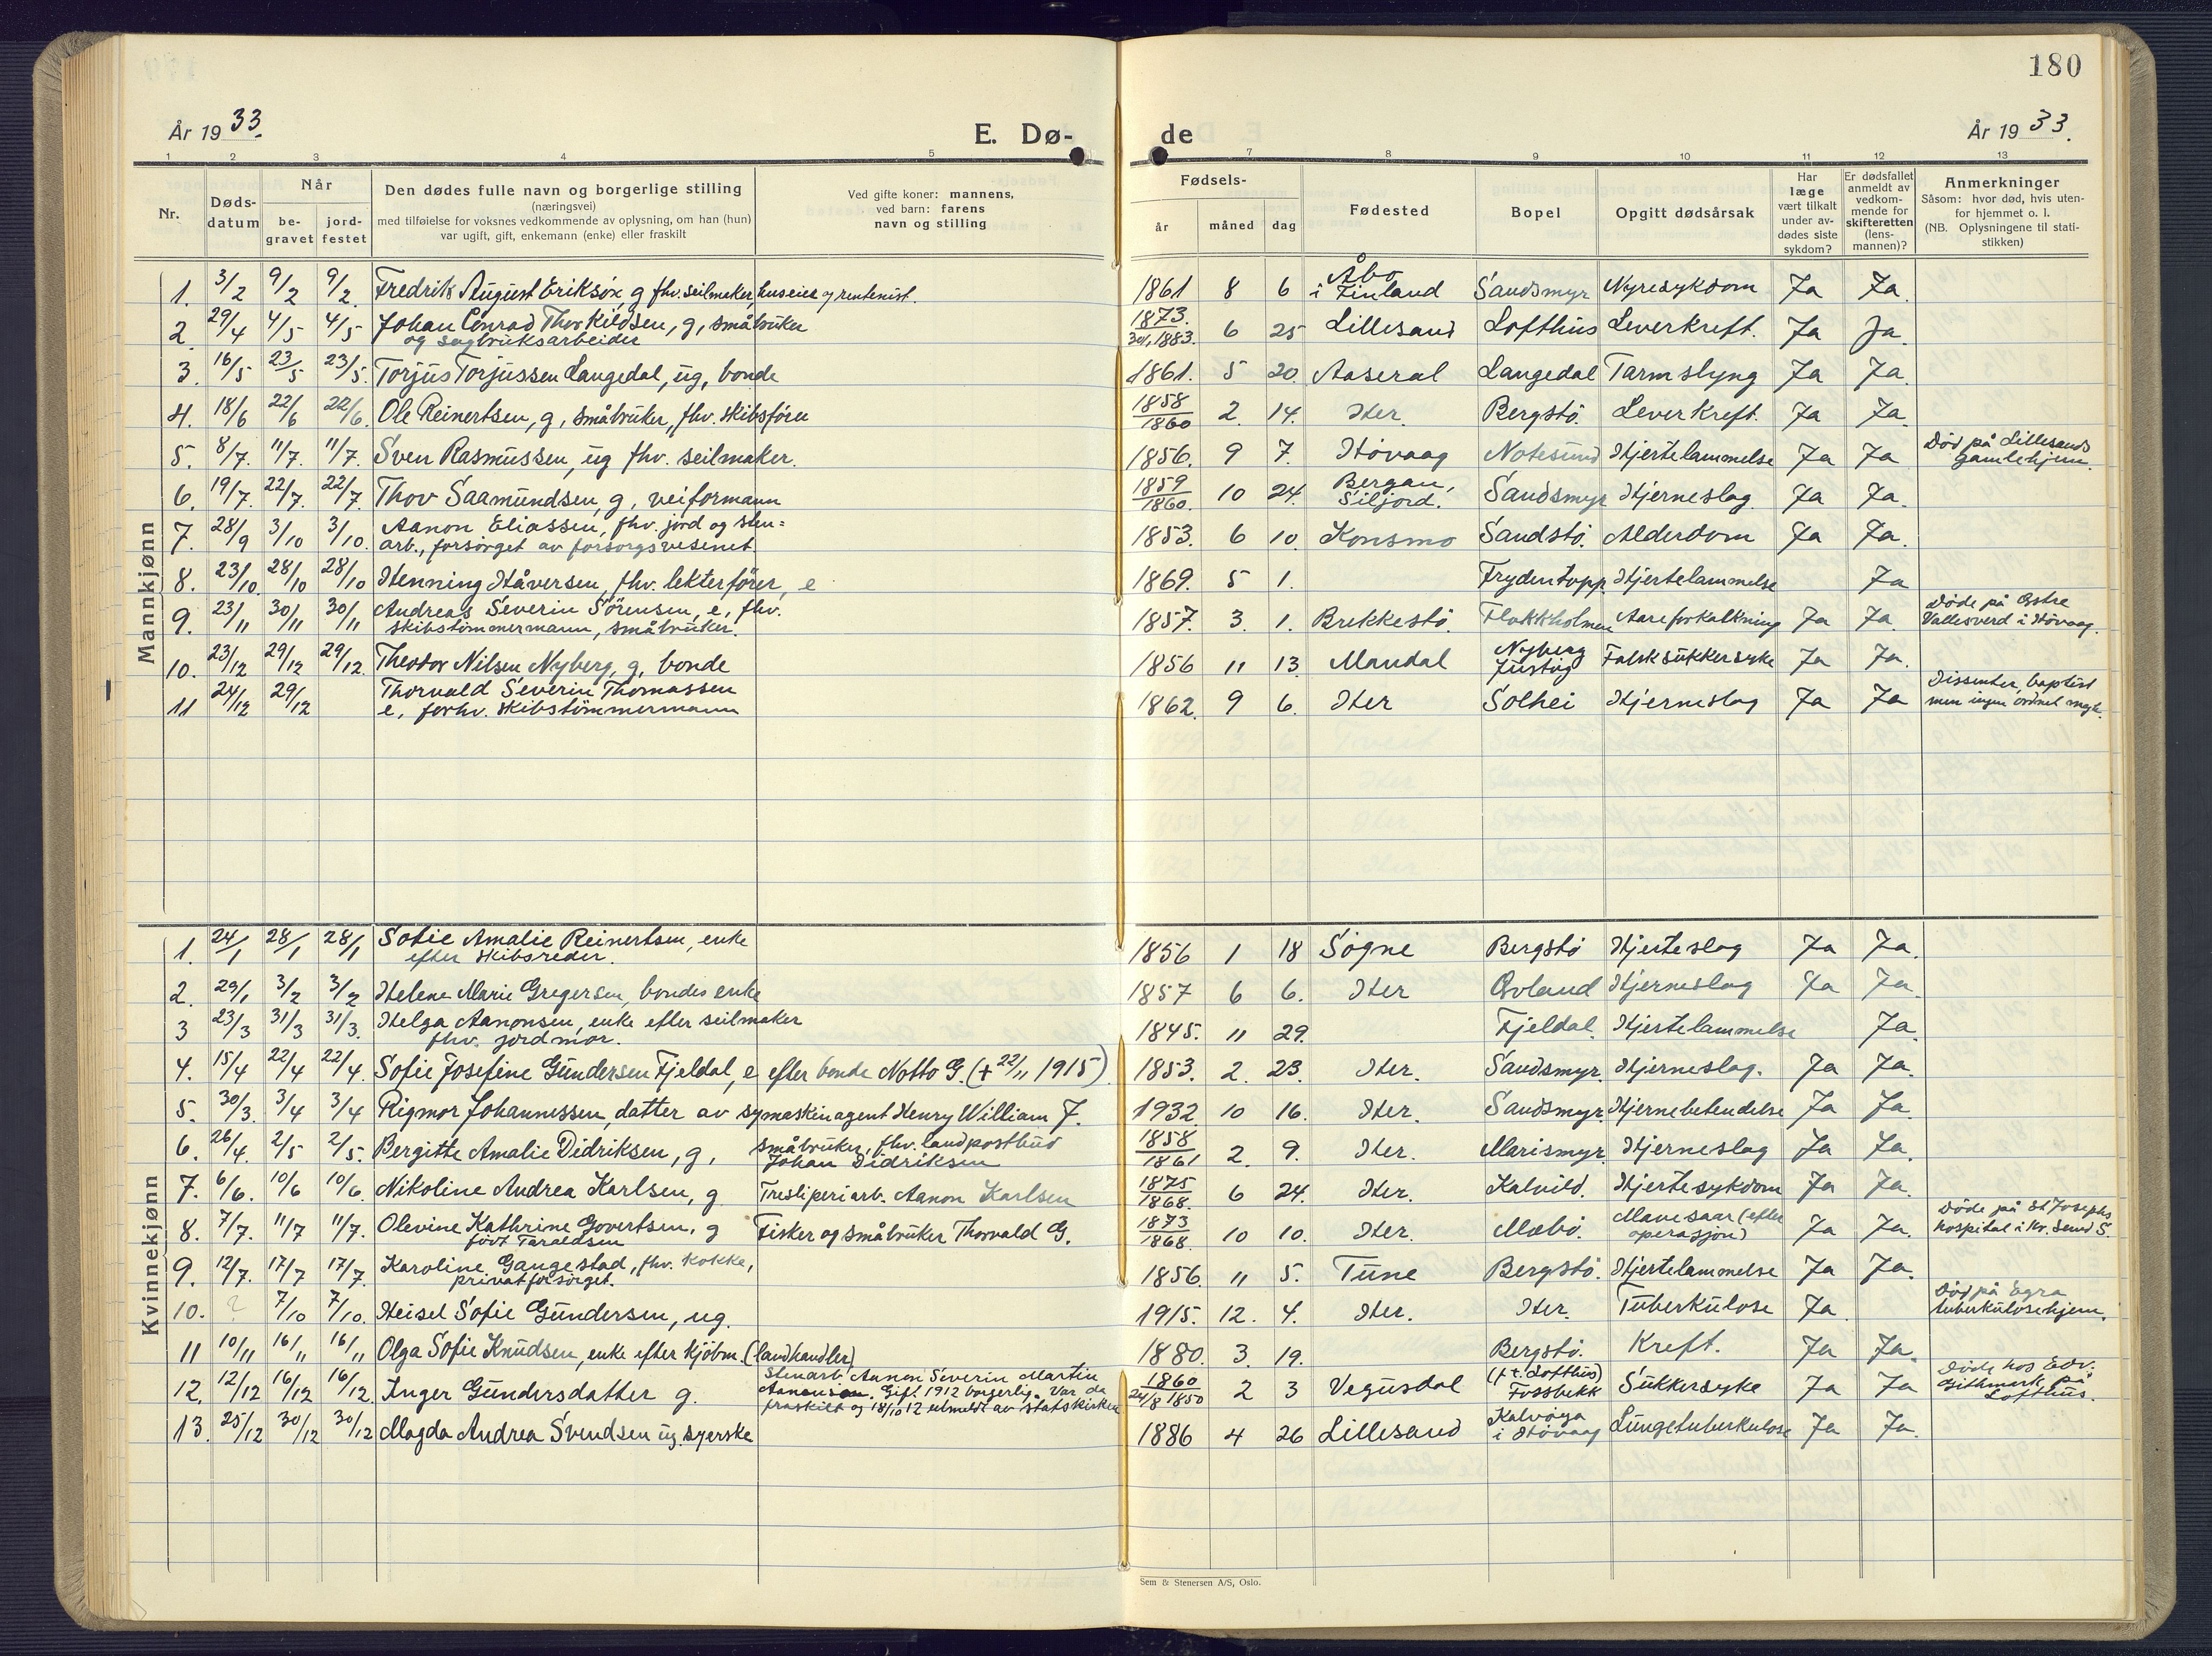 180
År 1933.
E. Dø-
de
År 1933.
1 2 3 4 5 7 8 9 10 11 12 13
Nr.
Døds-
datum
Når
be-
gravet
jord-
festet
Den dødes fulle navn og borgerlige stilling
(næringsvei)
med tilføielse for voksnes vedkommende av oplysning, om han (hun)
var ugift, gift, enkemann (enke) eller fraskilt
Ved gifte koner: mannens,
ved barn: farens
navn og stilling
Fødsels-
år måned dag
Fødested
Bopel
Opgitt dødsårsak
Har
læge
vært tilkalt
under av-
dødes siste
sykdom?
Er dødsfallet
anmeldt av
vedkom-
mende for
skifteretten
(lens-
mannen)?
Anmerkninger
Såsom: hvor død, hvis uten-
for hjemmet o. l.
(NB. Oplysningene til stati-
stikken)
Mannkjønn
1. 3/2 9/2 9/2. Fredrik August Eriksøn, g fhv. seilmaker, huseier og rentenist. 1861 8 6 Åbo
i Finland Sandsmyr Nyresykdom Ja Ja.
2. 29/4 4/5 4/5 Johan Conrad Thorkildsen, g, småbruker
og sagbruksarbeider 1873.
30/1, 1883. 6 25 Lillesand Lofthus Leverkreft. Ja Ja.
3. 16/5 23/5 23/5. Torjus Torjussen Langedal, ug, bonde 1861. 5 20. Aaseral Langedal Tarmslyng Ja Ja.
4. 18/6 22/6 22/6. Ole Reinertsen, g, småbruker, fhv. skibsfører 1858
1860 2. 14. Her. Bergstø. Leverkreft. Ja Ja.
5. 8/7. 11/7. 11/7. Sven Rasmussen, ug fhv. seilmaker. 1856. 9 7. Høvaag Notesund Hjertelammelse Ja Ja Død på Lillesands
gamlehjem.
6. 19/7. 22/7. 22/7. Thov Saamundsen, g, veiformann 1859
1860. 10 24. Bergan,
Siljord. Sandsmyr Hjerneslag. Ja Ja.
7. 28/9 3/10 3/10. Aanon Eliassen, fhv. jord og sten=
arb., forsørget av forsorgsvesenet. 1853. 6 10. Konsmo Sandstø. Alderdom Ja Ja.
8. 23/10. 28/10 28/10 Henning Håversen, fhv. lekterfører, e 1869. 5 1. Frydentopp. Hjertelammelse Ja
9. 23/11 30/11 30/11 Andreas Severin Sørensen, e, fhv.
skibstømmermann, småbruker. 1857. 3. 1. Brekkestø. Flakkholmen Aareforkalkning Ja Ja. Døde på Østre
Vallesverd i Høvaag.
10. 23/12 29/12 29/12. Theodor Nilsen Nyberg, g, bonde 1856 11 13. Mandal Nyberg
Justøy Falsk sukkersyke Ja Ja.
11 24/12 29/12 Thorvald Severin Thomassen
e, forhv. skibstømmermann 1862. 9 6. Her Solhei Hjerneslag Ja Ja Dissenter, baptist
men ingen ordnet
Kvinnekjønn
1. 24/1 28/1 28/1 Sofie Amalie Reinertsen, enke
efter skibsreder. 1856 1 18 Søgne Bergstø Hjerteslag Ja Ja.
2. 29/1 3/2 3/2 Helene Marie Gregersen, bondes enke 1857 6 6. Her Øvland Hjerneslag Ja Ja.
3 23/3 31/3 31/3. Helga Aanonsen, enke efter seilmaker
fhv. jordmor. 1845. 11 29. Fjeldal. Hjertelammelse Ja.
4. 15/4 22/4 22/4. Sofie Josefine Gundersen Fjeldal, e efter bonde Notto G. (+ 22/11 1915) 1853. 2. 23. Her. Sandsmyr. Hjerneslag. Ja Ja.
5. 30/3. 3/4 3/4 Rigmor Johannessen, datter av symaskinagent Henry William J. 1932. 10 16. Her. Sandsmyr. Hjernebetendelse Ja Ja.
6. 26/4. 2/5 2/5. Bergitte Amalie Didriksen, g, småbruker, fhv. landpostbud
Johan Didriksen 1858
1861 2. 9. Her. Marismyr. Hjerneslag Ja Ja.
7. 6/6. 10/6 10/6. Nikoline Andrea Karlsen, g Tresliperiarb. Aanon Karlsen 1875
1868. 6 24. Her. Kalvild. Hjertesykdom Ja Ja.
8. 7/7. 11/7 11/7. Olevine Kathrine Govertsen, g
født Taraldsen Fisker og småbruker Thorvald G. 1873
1868. 10 10. Her. Mæbø. Mavesaar (efter
operasjon) Ja Ja. Døde på St Josephs
hospital i Kr. sand S.
9. 12/7. 17/7 17/7. Karoline Gangestad, fhv. kokke,
privat forsørget. 1856. 11 5. Tune Bergstø. Hjertelammelse Ja Ja.
10. ? 7/10 7/10. Heisel Sofie Gundersen, ug. 1915. 12. 4. Her. Her. Tuberkulose Ja Død på Egra
tuberkulosehjem.
11 10/11 16/11 16/11 Olga Sofie Knudsen, enke efter kjøbm. (landhandler) 1880. 3. 19. Bergstø. Kreft. Ja Ja.
12. 12/12 16/12 16/12. Inger Gundersdatter g. Stenarb. Aanon Severin Martin
Aanonsen. Gift 1912 borgerlig. Var da
fraskilt og 18/10 12 utmeldt av statskirken 1860
24/8 1850 2 3 Vegusdal (f.t. Lofthus)
Fossbekk Sukkersyke Ja Ja Døde hos
på
Lofthus.
13. 25/12 30/12 30/12 Magda Andrea Svendsen ug. syerske 1886 4 26 Lillesand Kalvøya
i Høvaag Lungetuberkulose Ja Ja.
Sem & Stenersen A/S, Oslo.